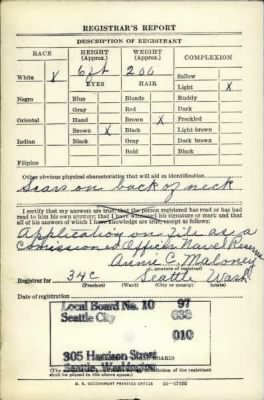 REGISTRAR'S REPORT
DESCRIPTION OF REGISTRANT
RACE HEIGHT (Approx.) WEIGHT (Approx.) COMPLEXION
6 ft 200
White X EYES HAIR Sallow
Light X
Negro Blue Blonde Ruddy
Gray Red Dark
Oriental Hazel Brown X Freckled
Brown X Black Light brown
Indian Black Gray Dark brown
Bald Black
Filipino
Other obvious physical characteristics that will aid in identification
Scars on back of neck
I certify that my answers are true; that the person registered has read or has had
read to him his own answers; that I have witnessed his signature or mark and that
all of his answers of which I have knowledge are true, except as follows:
Application on file as a
Commissioned Officer Naval Reserve
Annie C. Maloney
(Signature of registrar)
Registrar for 34C Seattle Wash
(Precinct) (Ward) (City or county) (State)
Date of registration
Local Board No. 10 97
Seattle City 033
010
305 Harrison Street
Seattle, Washington
U. S. GOVERNMENT PRINTING OFFICE